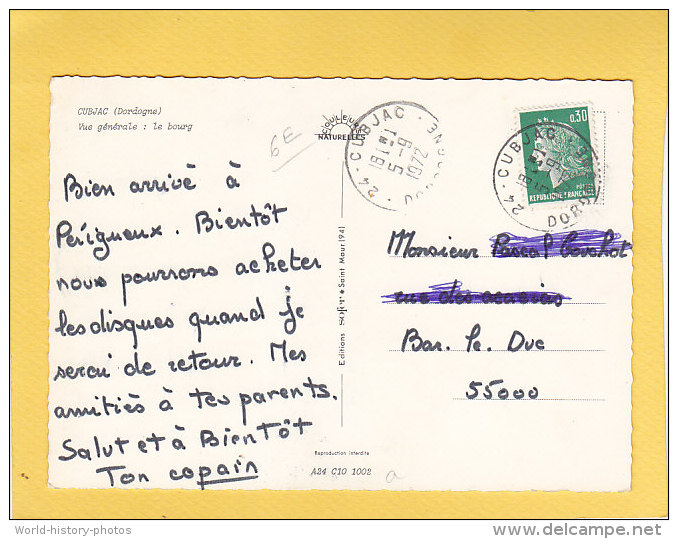 CUBJAC (Dordogne)
Vue générale : le bourg
COULEURS
NATURELLES
6E
24 - CUBJAC - DORDOGNE
18H
5-9
1972
0,30
POSTES
REPUBLIQUE FRANÇAISE
24 - CUBJAC - DORD
Bien arrivé à
Périgueux. Bientôt
nous pourrons acheter
les disques quand je
serai de retour. Mes
amitiés à tes parents.
Salut et à Bientôt
Ton copain
Monsieur
rue des acacias
Bar. le. Duc
55000
Editions "SOFER" ★ Saint Maur (94)
Reproduction interdite
A24 C10 1002
a
World-history-photos
©delcampe.net